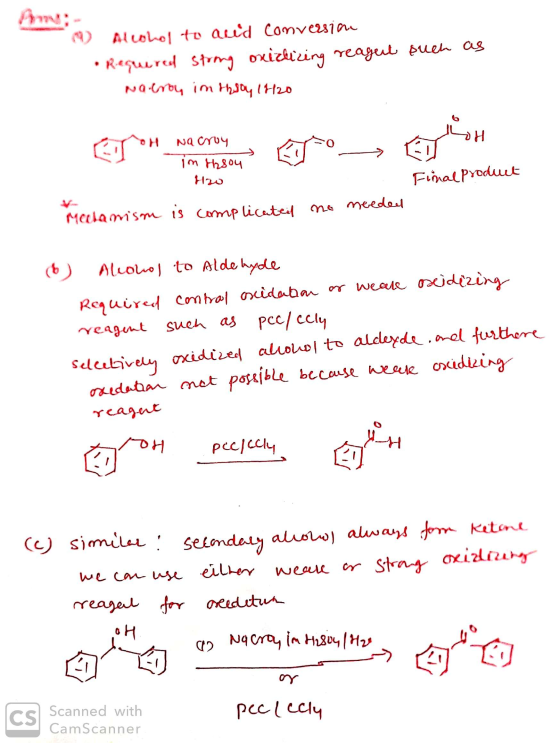 Ans:-
(a) Alcohol to acid Conversion
• Required strong oxidizing reagent such as
Na2CrO4 in H2SO4/H2O
OH Na CrO4 O O OH
in H2SO4
H2O Final Product
* Mechanism is complicated no needed
(b) Alcohol to Aldehyde
Required control oxidation or weak oxidizing
reagent such as PCC/CCl4
selectively oxidized alcohol to aldeyde. and furthere
oxedation not possible because weak oxidizing
reagent
OH PCC/CCl4 O H
(c) similar : secondary alcohol always form Ketone
we can use either weak or strong oxidizing
reagent for oxedetion
OH (1) Na CrO4 in H2SO4/H2O O
or
PCC/CCl4
CS Scanned with
CamScanner